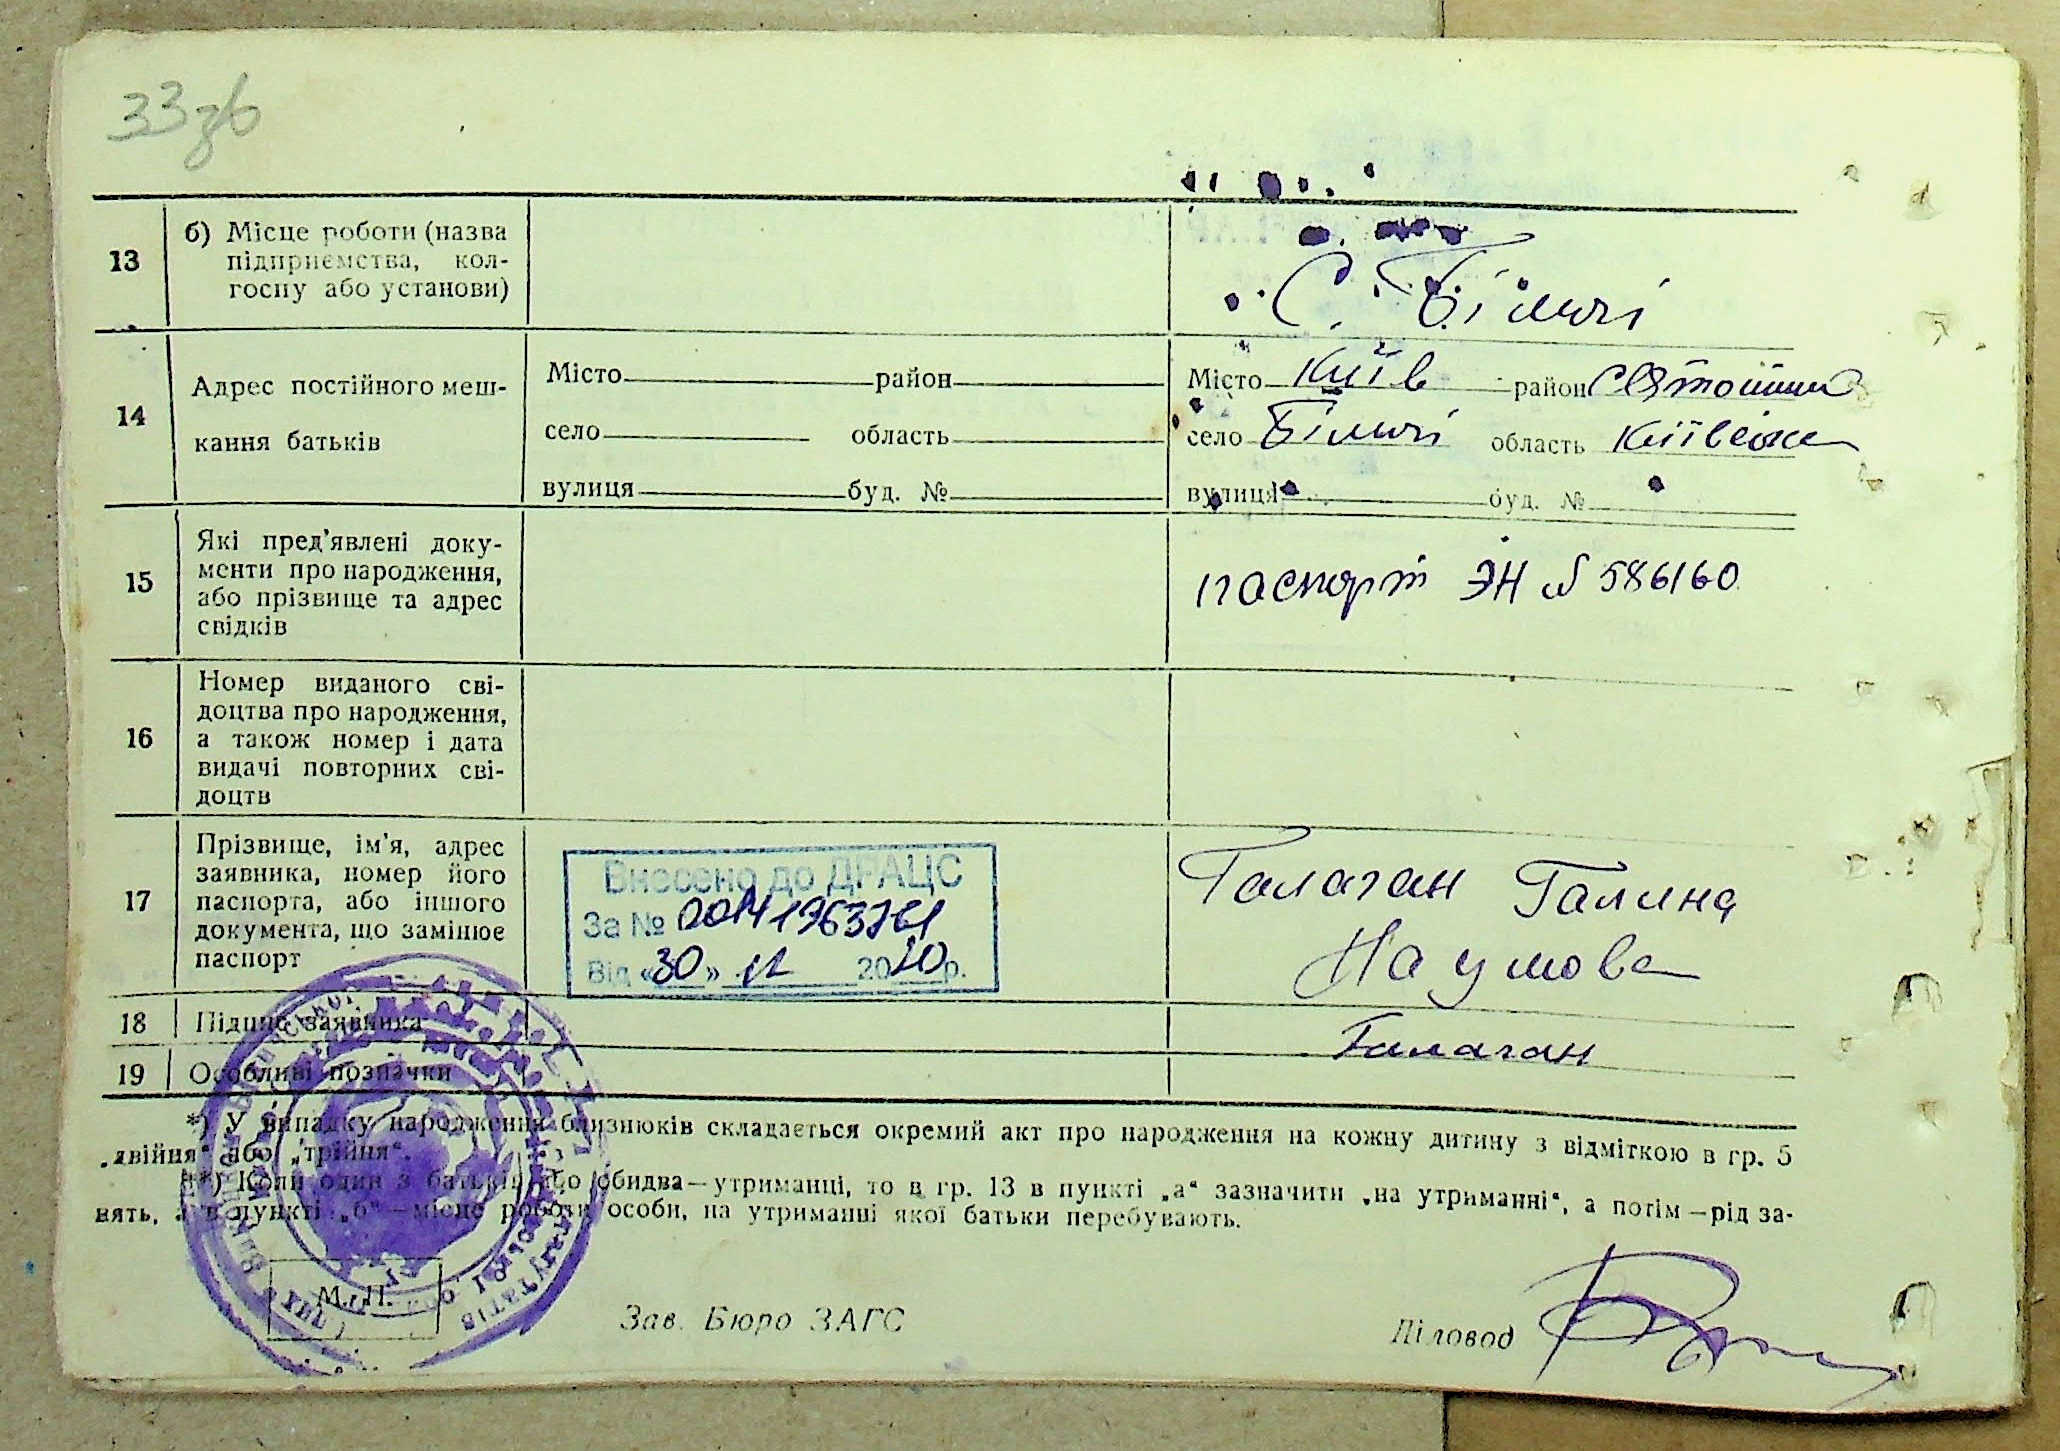 33зв
13
б) Місце роботи (назва
підприємства, кол-
госпу або установи)
С. Біличі
14
Адрес постійного меш-
кання батьків
Місто район
село область
вулиця буд. №
Місто Київ район Святошин
село Біличі область Київська
вулиця буд. №
15
Які пред'явлені доку-
менти про народження,
або прізвище та адрес
свідків
паспорт ЭН № 586160
16
Номер виданого сві-
доцтва про народження,
а також номер і дата
видачі повторних сві-
доцтв
17
Прізвище, ім'я, адрес
заявника, номер його
паспорта, або іншого
документа, що замінює
паспорт
Внесено до ДРАЦС
За № 00141963761
Від «30» 12 2020р.
Галаган Галина
Наумова
18 Підпис заявника
Галаган
19 Особливі позначки
*) У випадку народження близнюків складається окремий акт про народження на кожну дитину з відміткою в гр. 5
„двійня“ або „трійня“.
**) Коли один з батьків або обидва—утриманці, то в гр. 13 в пункті „а“ зазначити „на утриманні“, а потім—рід за-
нять, а в пункті „б“—місце роботи особи, на утриманні якої батьки перебувають.
М. П.
Зав. Бюро ЗАГС
Діловод